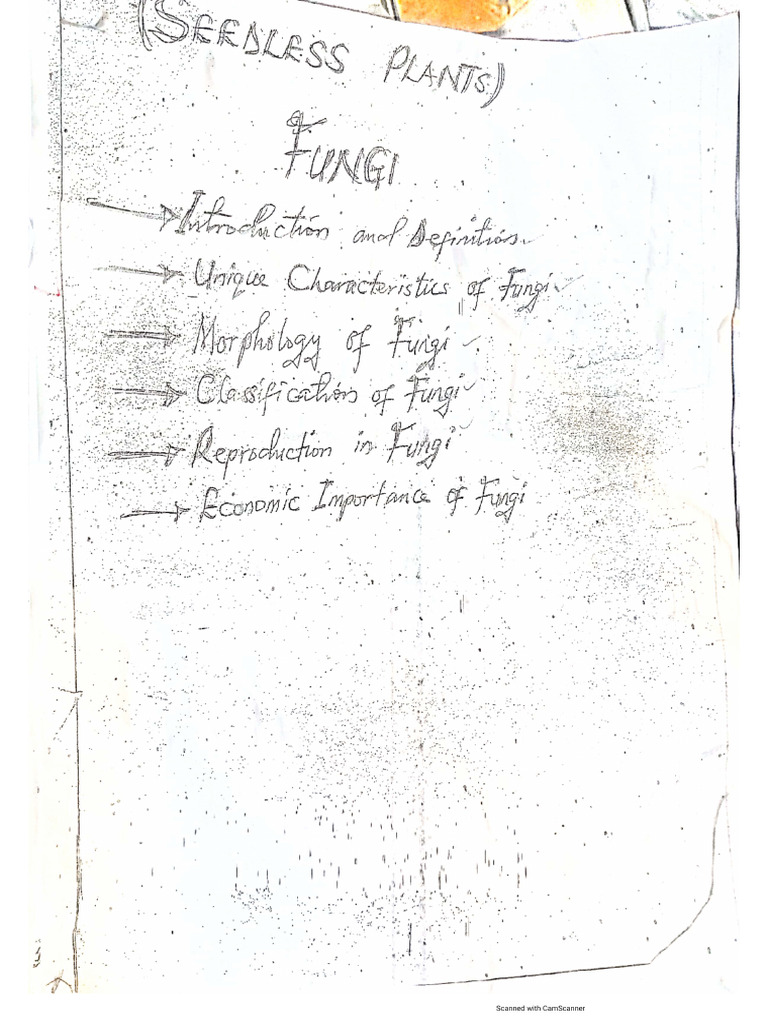 (SEEDLESS PLANTS)
FUNGI
→ Introduction and Definition
→ Unique Characteristics of Fungi
→ Morphology of Fungi
→ Classification of Fungi
→ Reproduction in Fungi
→ Economic Importance of Fungi
Scanned with CamScanner